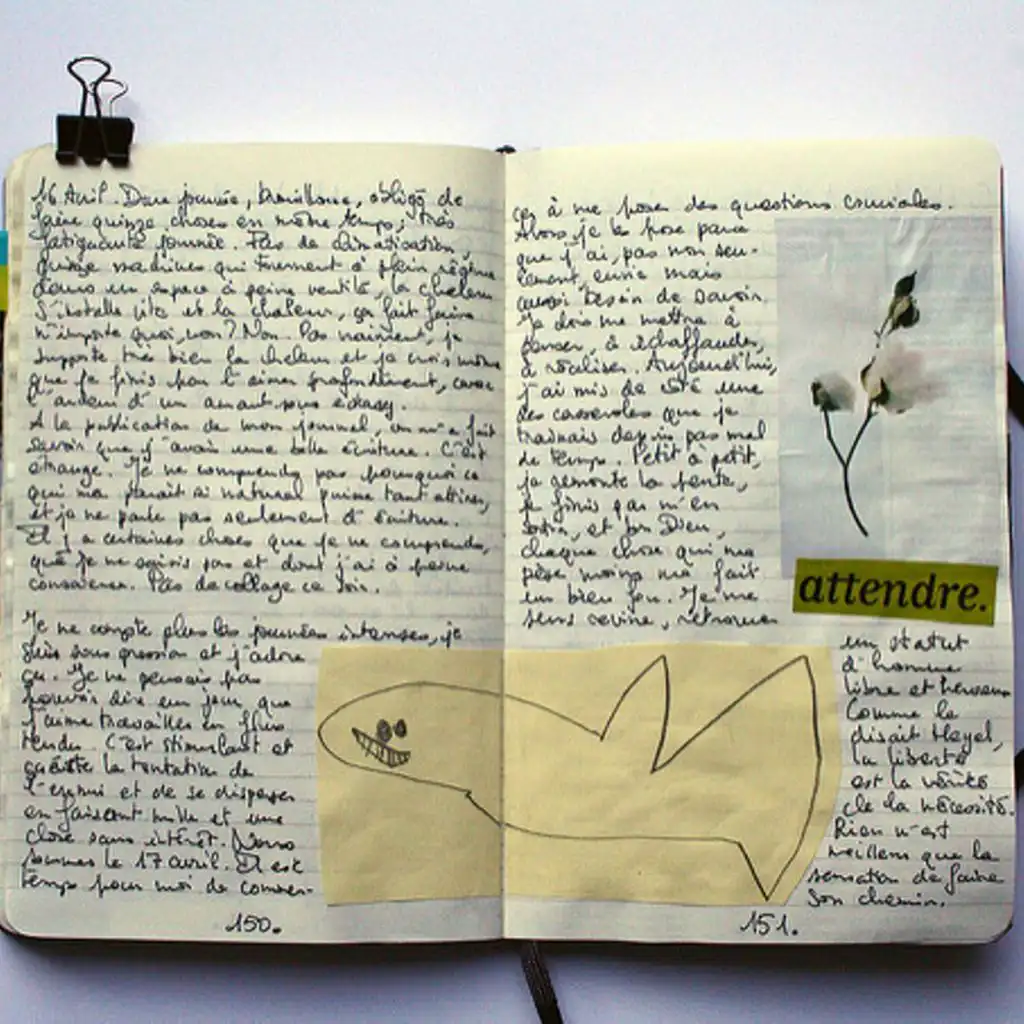 16 Avril. Dure journée, brouillonne, obligé de
faire quinze choses en même temps; très
fatiguante journée. Pas de climatisation,
quinze machines qui tournent à plein régime
dans un espace à peine ventilé, la chaleur
s'installe vite et la chaleur, ça fait faire
n'importe quoi, non? Non. Pas vraiment, je
supporte très bien la chaleur et je crois même
que je finis par l'aimer profondément, avec
l'ardeur d'un amant sous extasy.
A la publication de mon journal, on m'a fait
savoir que j'avais une belle écriture. C'est
étrange. Je ne comprends pas pourquoi ce
qui me paraît si naturel puisse tant attirer,
et je ne parle pas seulement d'écriture.
Il y a certaines choses que je ne comprends,
que je ne saisis pas et dont j'ai à peine
conscience. Pas de collage ce soir.
Je ne compte plus les journées intenses, je
suis sous pression et j'adore
ça. Je ne pensais pas
pouvoir dire un jour que
j'aime travailler en flux
tendu. C'est stimulant et
la tentation de
l'ennui et de se disperser
en faisant mille et une
chose sans intérêt. Nous
sommes le 17 avril. Il est
temps pour moi de commen-
150.
cer à me poser des questions cruciales.
Alors je les pose parce
que j'ai, pas non seu-
lement, envie mais
aussi besoin de savoir.
Je dois me mettre à
penser, à échaffauder,
à réaliser. Aujourd'hui,
j'ai mis de côté une
des casseroles que je
trainais depuis pas mal
de temps. Petit à petit,
je remonte la pente,
je finis par m'en
sortir, et bon Dieu,
chaque chose qui me
pèse moins me fait
un bien fou. Je me
sens revivre, retrouver
attendre.
un statut
d'homme
libre et heureux
Comme le
disait Hegel,
la liberté
est la vérité
de la nécessité.
Rien n'est
meilleur que la
sensation de faire
son chemin.
151.